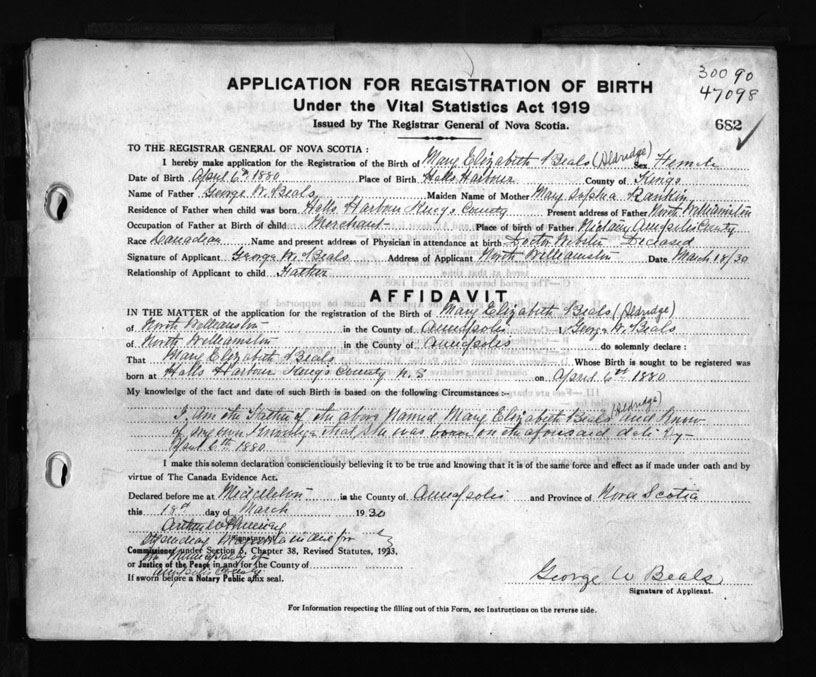 300 90
47098
682
APPLICATION FOR REGISTRATION OF BIRTH
Under the Vital Statistics Act 1919
Issued by The Registrar General of Nova Scotia.
TO THE REGISTRAR GENERAL OF NOVA SCOTIA :
I hereby make application for the Registration of the Birth of Mary Elizabeth Beals (Aldridge) Sex Female
Date of Birth April 6th 1880 Place of Birth Halls Harbour County of Kings
Name of Father George W. Beals Maiden Name of Mother Mary Sophia Rankin
Residence of Father when child was born Halls Harbour Kings County Present address of Father North Williamston
Occupation of Father at Birth of child Merchant Place of birth of Father Nictaux Annapolis County
Race Canadian Name and present address of Physician in attendance at birth Doctor Webster Deceased
Signature of Applicant George W. Beals Address of Applicant North Williamston Date March 18/30
Relationship of Applicant to child Father
AFFIDAVIT
IN THE MATTER of the application for the registration of the Birth of Mary Elizabeth Beals (Aldridge)
of North Williamston in the County of Annapolis, George W. Beals
of North Williamston in the County of Annapolis do solemnly declare :
That Mary Elizabeth Beals Whose Birth is sought to be registered was
born at Halls Harbour King's County N.S on April 6th 1880
My knowledge of the fact and date of such Birth is based on the following Circumstances :-
I am the Father of the above Named Mary Elizabeth Beals (Aldridge) and know
of my own knowledge that she was born on the aforesaid date
April 6th 1880
I make this solemn declaration conscientiously believing it to be true and knowing that it is of the same force and effect as if made under oath and by
virtue of The Canada Evidence Act.
Declared before me at Middleton in the County of Annapolis and Province of Nova Scotia
this 18th day of March 1930
Commissioner under Section 6, Chapter 38, Revised Statutes, 1923.
the Municipality of
or Justice of the Peace in and for the County of
Annapolis County
If sworn before a Notary Public affix seal.
George W Beals
Signature of Applicant.
For Information respecting the filling out of this Form, see Instructions on the reverse side.